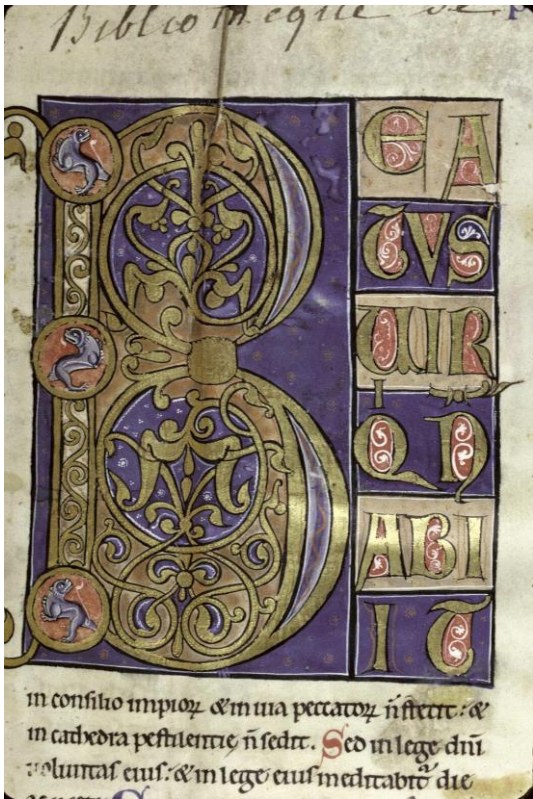 Bibliotheque de
B
EA
TVS
UIR
QI N
ABI
IT
in consilio impioꝝ & in uia peccatoꝝ ñ stetit: &
in cathedra pestilentie ñ sedit. Sed in lege dñi
uoluntas eius: & in lege eius meditabit᷑ die